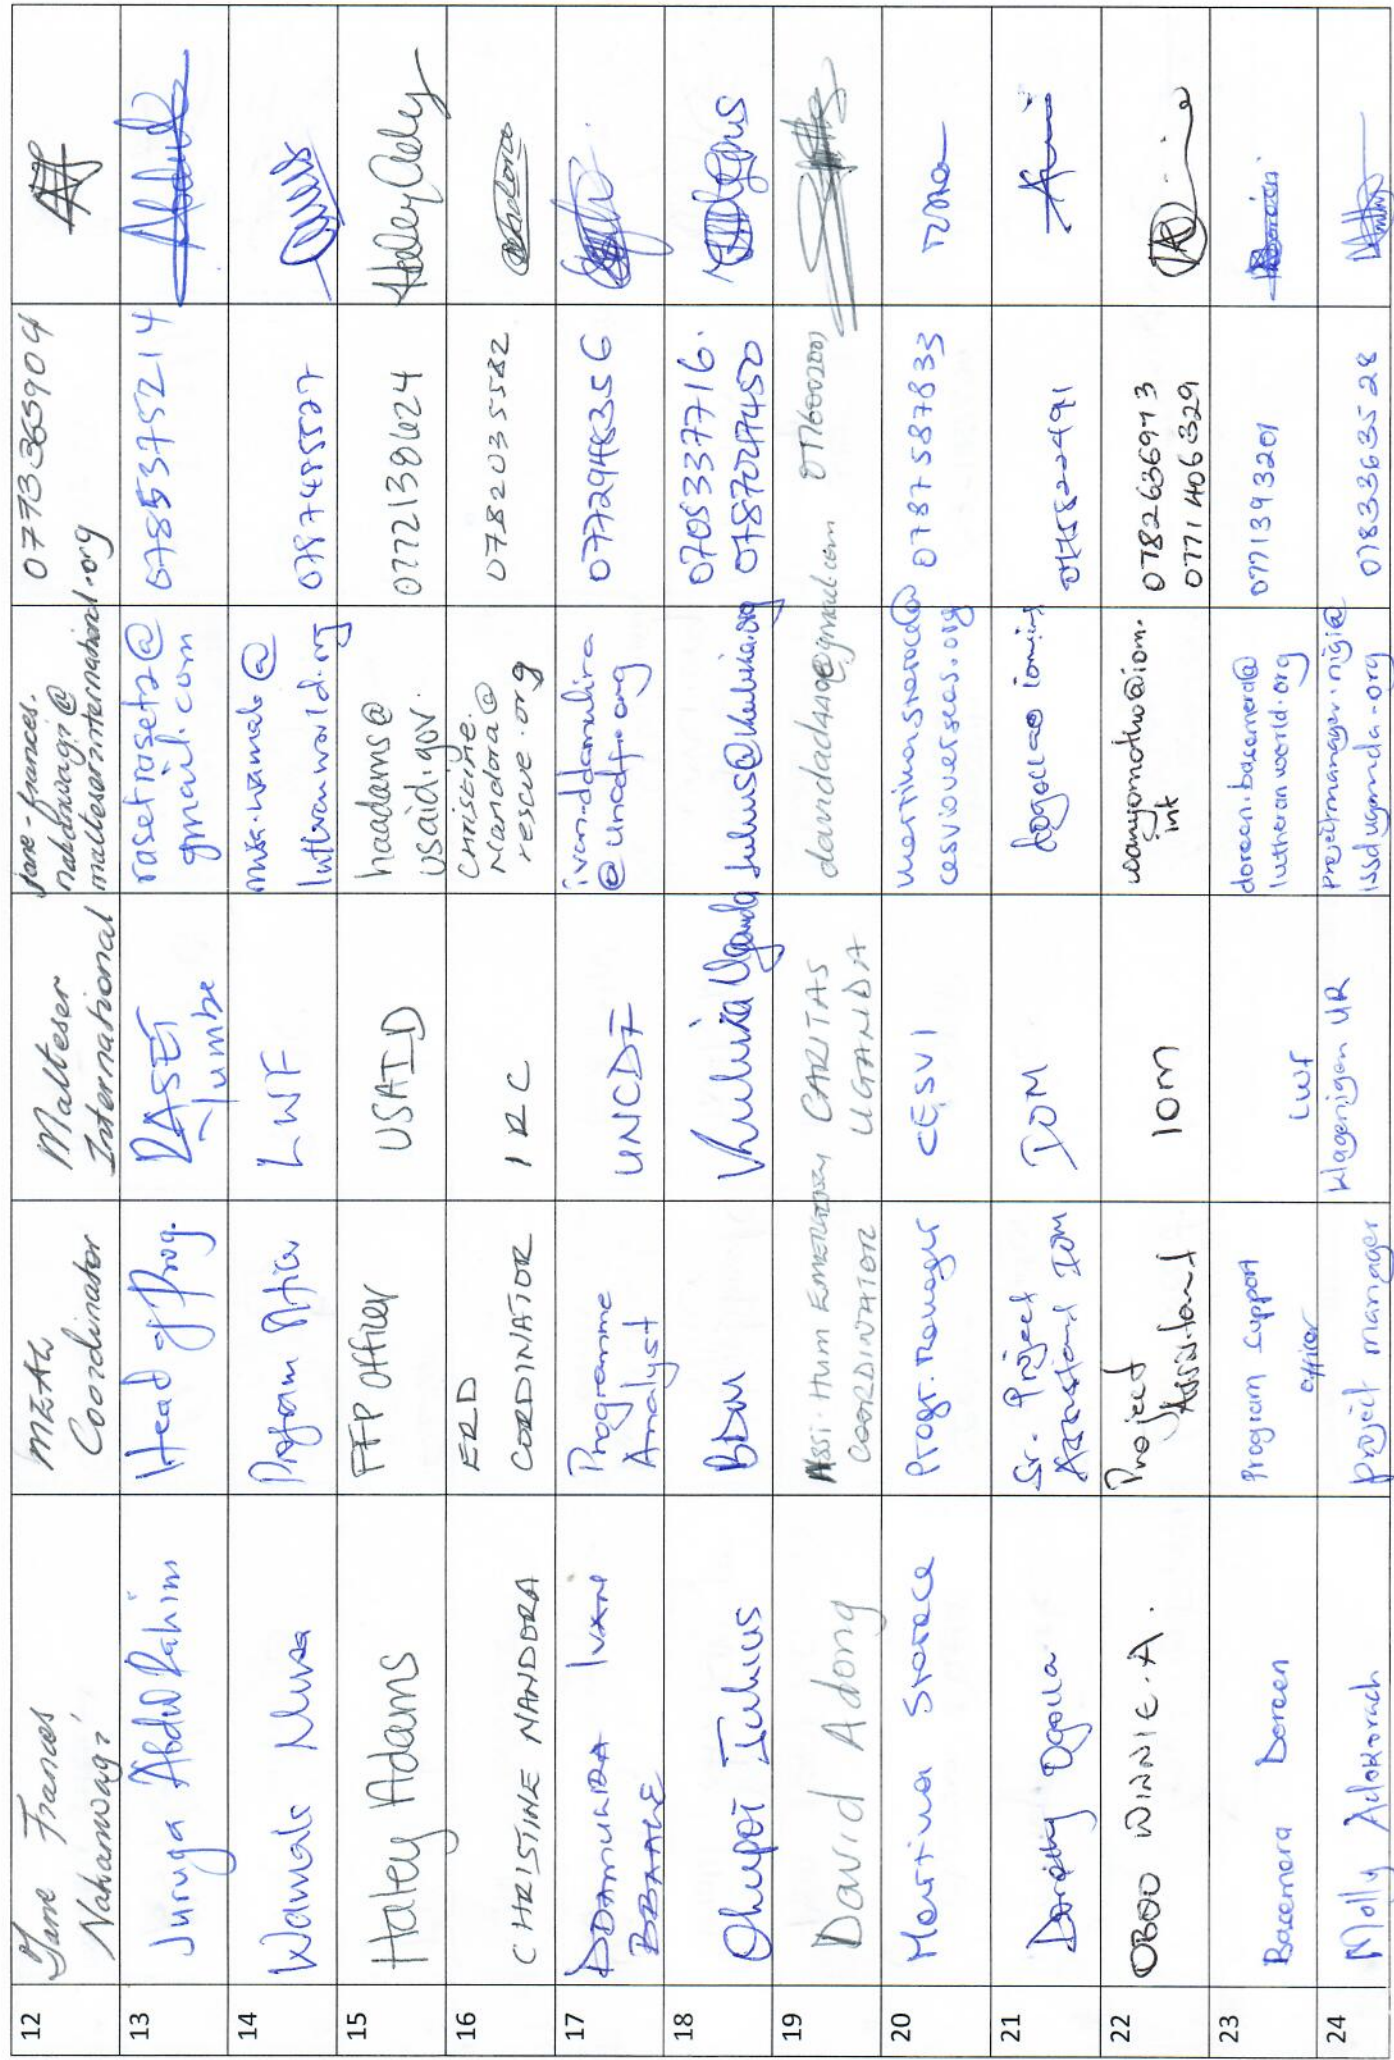 12
Jane Frances
Nakanwagi
MEAL
Coordinator
Malteser
International
jane-frances.
nakanwagi@
malteserinternational.org
0773365904
13
Juruga Abdul Rahim
Head of Prog.
RASET
Yumbe
rasetraset2@
gmail.com
0785375214
14
Wamala Musa
Program Officer
LWF
musa.wamala@
lutheranworld.org
15
Haley Adams
FFP Officer
USAID
haadams@
usaid.gov.
0772138624
16
CHRISTINE NANDORA
ERD
CORDINATOR
IRC
Christine.
Nandora@
rescue.org
0782035582
17
DDAMULIRA IVAN
BBAALE
Programme
Analyst
UNCDF
ivan.ddamulira
@uncdf.org
0772948356
18
Okupot Julius
BDM
Uganda
0705337716
19
David Adong
Assi. Hum EMERGENCY
COORDINATOR
CARITAS
UGANDA
20
Martina Storace
Progr. Manager
CESVI
martinastorace@
cesvioverseas.org
0787587833
21
Dorothy Ogolla
Sr. Project
Assistant IOM
IOM
22
OBOO WINNIE.A.
Project
Assistant
IOM
int
0782636973
0771406329
23
Bacemera Doreen
Program support
officer
LWF
doreen.bacemera@
lutheranworld.org
0771393201
24
Molly Adokorach
project manager
UR
issduganda.org
0783363528